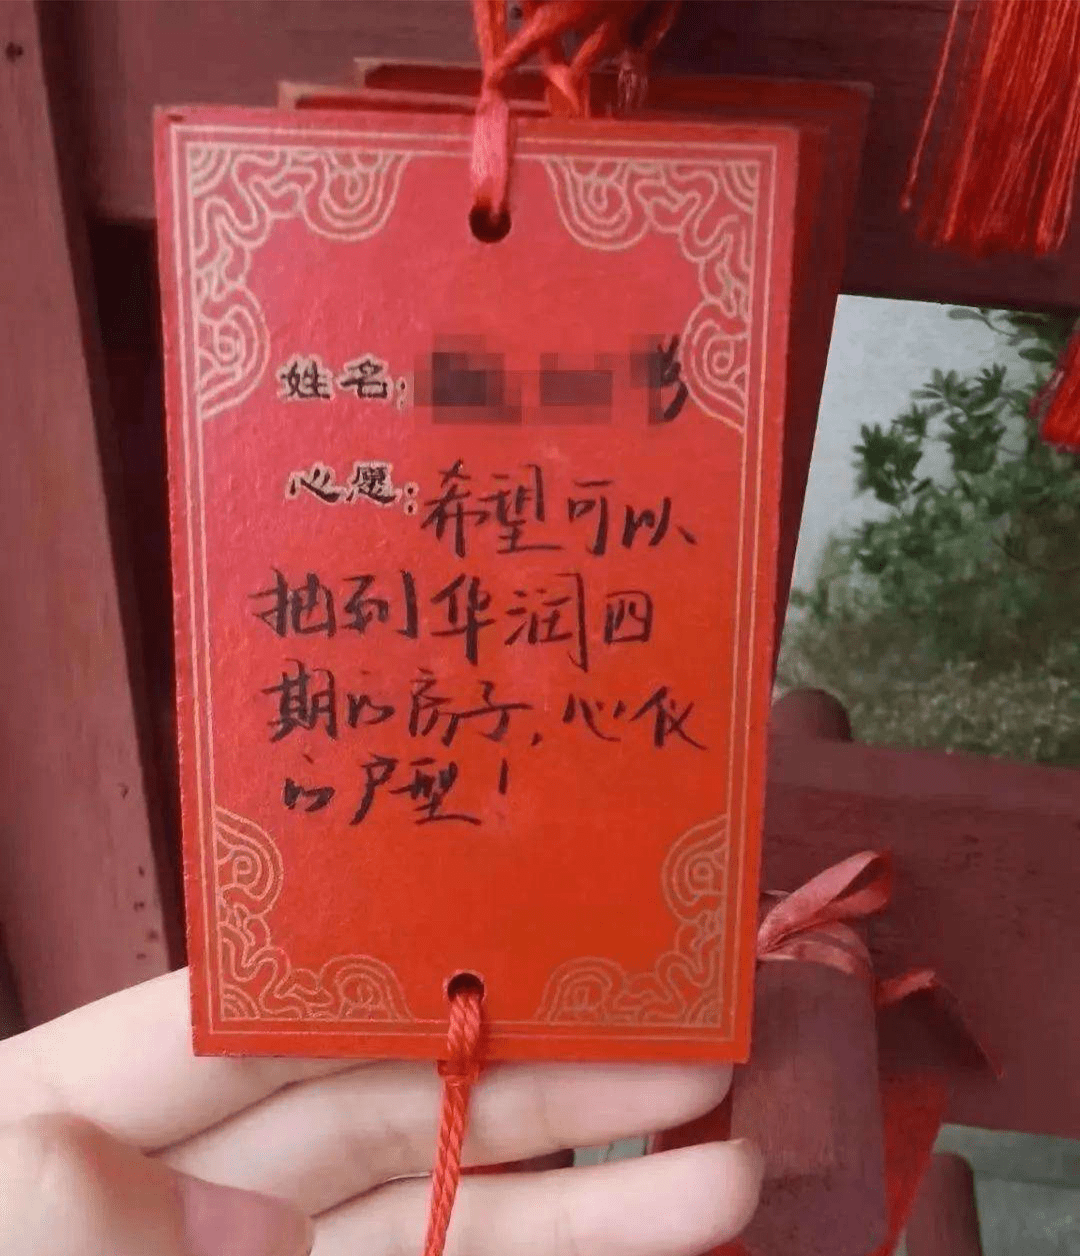 姓名:
心愿:希望可以
抽到华润四
期的房子,心仪
的户型!